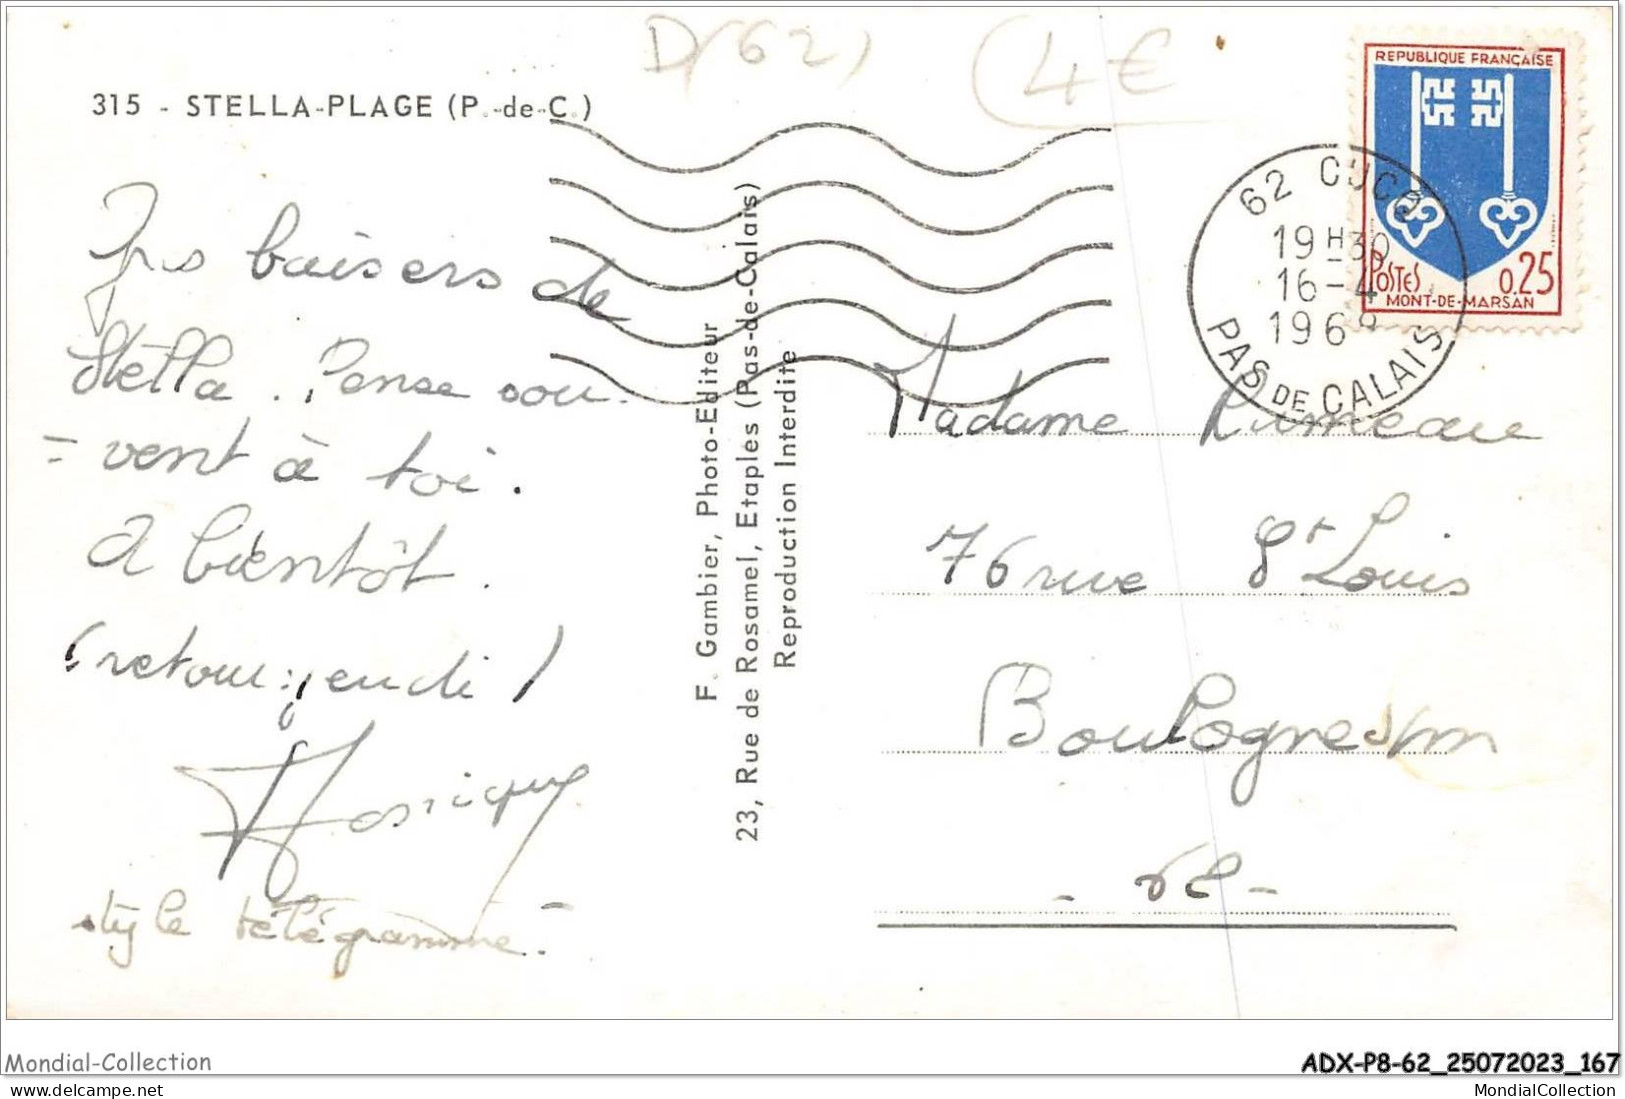 D(62)
4€
315 - STELLA-PLAGE (P.-de-C.)
REPUBLIQUE FRANÇAISE
POSTES 0.25
MONT-DE-MARSAN
62 CUCQ
19H30
16-4
196
PAS DE CALAIS
baisers de
Stella. Pense sou
=vent à toi.
A bientôt.
(retour: jeudi)
style télégramme.
F. Gambier, Photo-Editeur
23, Rue de Rosamel, Etaples (Pas-de-Calais)
Reproduction Interdite
Madame Lumeau
76 rue St Louis
Boulogne s/m
- 62 -
Mondial-Collection
ADX-P8-62_25072023_167
MondialCollection
MondialCollection